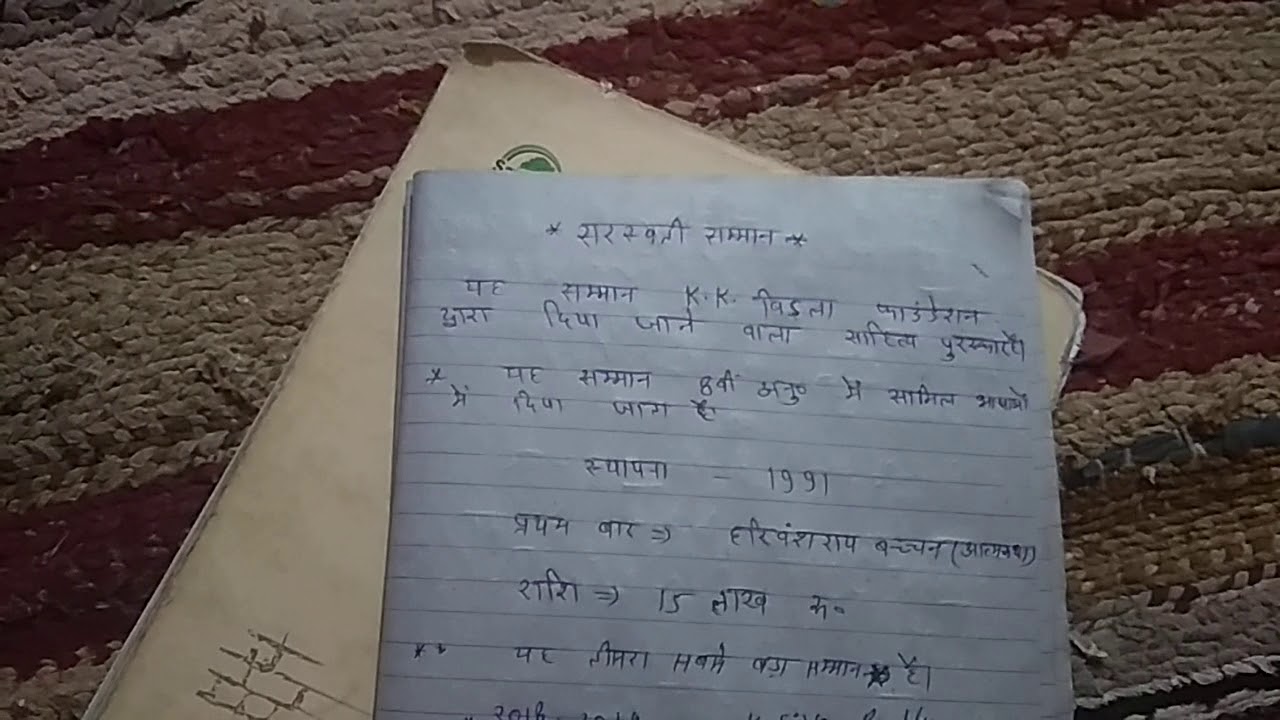 * सरस्वती सम्मान *
यह सम्मान K.K. विड़ला फाउंडेशन
द्वारा दिया जाने वाला साहित्य पुरस्कार है।
* यह सम्मान 8वीं अनु० में सामिल भाषाओं
में दिया जाता है
स्थापना - 1991
प्रथम बार => हरिवंशराय बच्चन (आत्मकथा)
राशि => 15 लाख रु०
** यह तीसरा सबसे बड़ा सम्मान है।